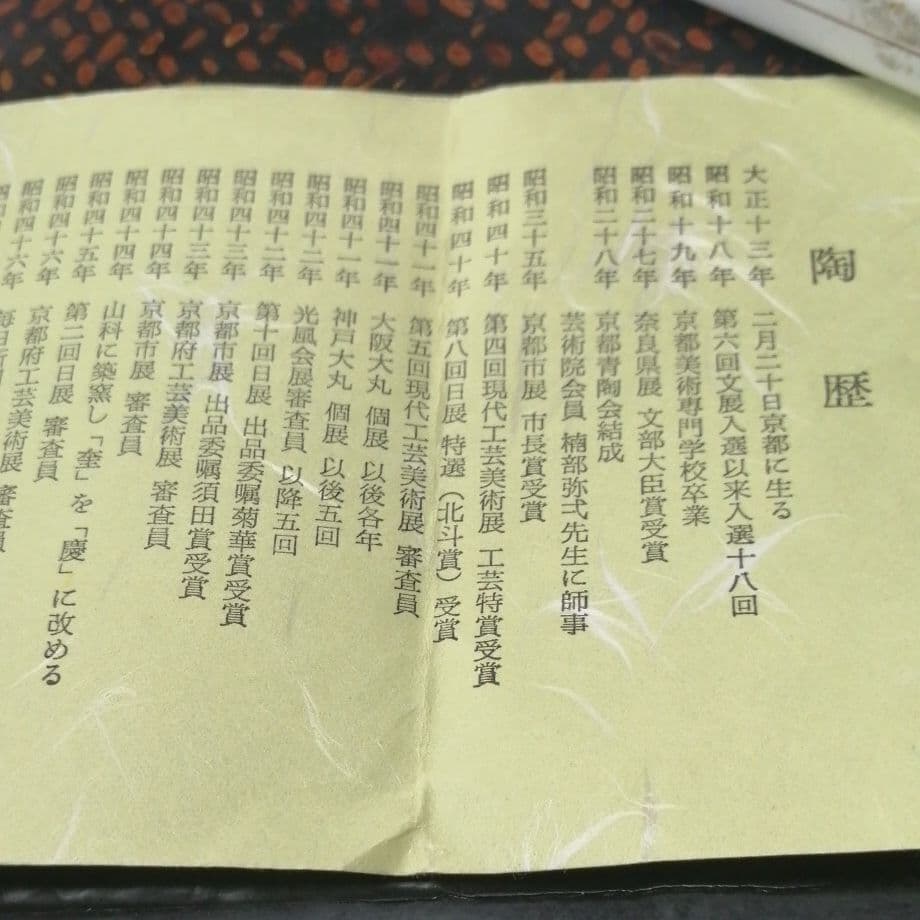 陶歴
大正十三年 二月二十日京都に生る
昭和十八年 第六回文展入選以来入選十八回
昭和十九年 京都美術専門学校卒業
昭和二十七年 奈良県展 文部大臣賞受賞
昭和二十八年 京都青陶会結成
芸術院会員 楠部弥弌先生に師事
昭和三十五年 京都市展 市長賞受賞
昭和四十年 第四回現代工芸美術展 工芸特賞受賞
昭和四十年 第八回日展 特選（北斗賞）受賞
昭和四十一年 第五回現代工芸美術展 審査員
昭和四十一年 大阪大丸 個展 以後各年
昭和四十一年 神戸大丸 個展 以後五回
昭和四十二年 光風会展審査員 以降五回
昭和四十二年 第十回日展 出品委嘱菊華賞受賞
昭和四十三年 京都市展 出品委嘱須田賞受賞
昭和四十三年 京都府工芸美術展 審査員
昭和四十四年 京都市展 審査員
昭和四十四年 山科に築窯し「奎」を「慶」に改める
昭和四十五年 第二回日展 審査員
昭和四十六年 京都府工芸美術展 審査員
昭和四十六年